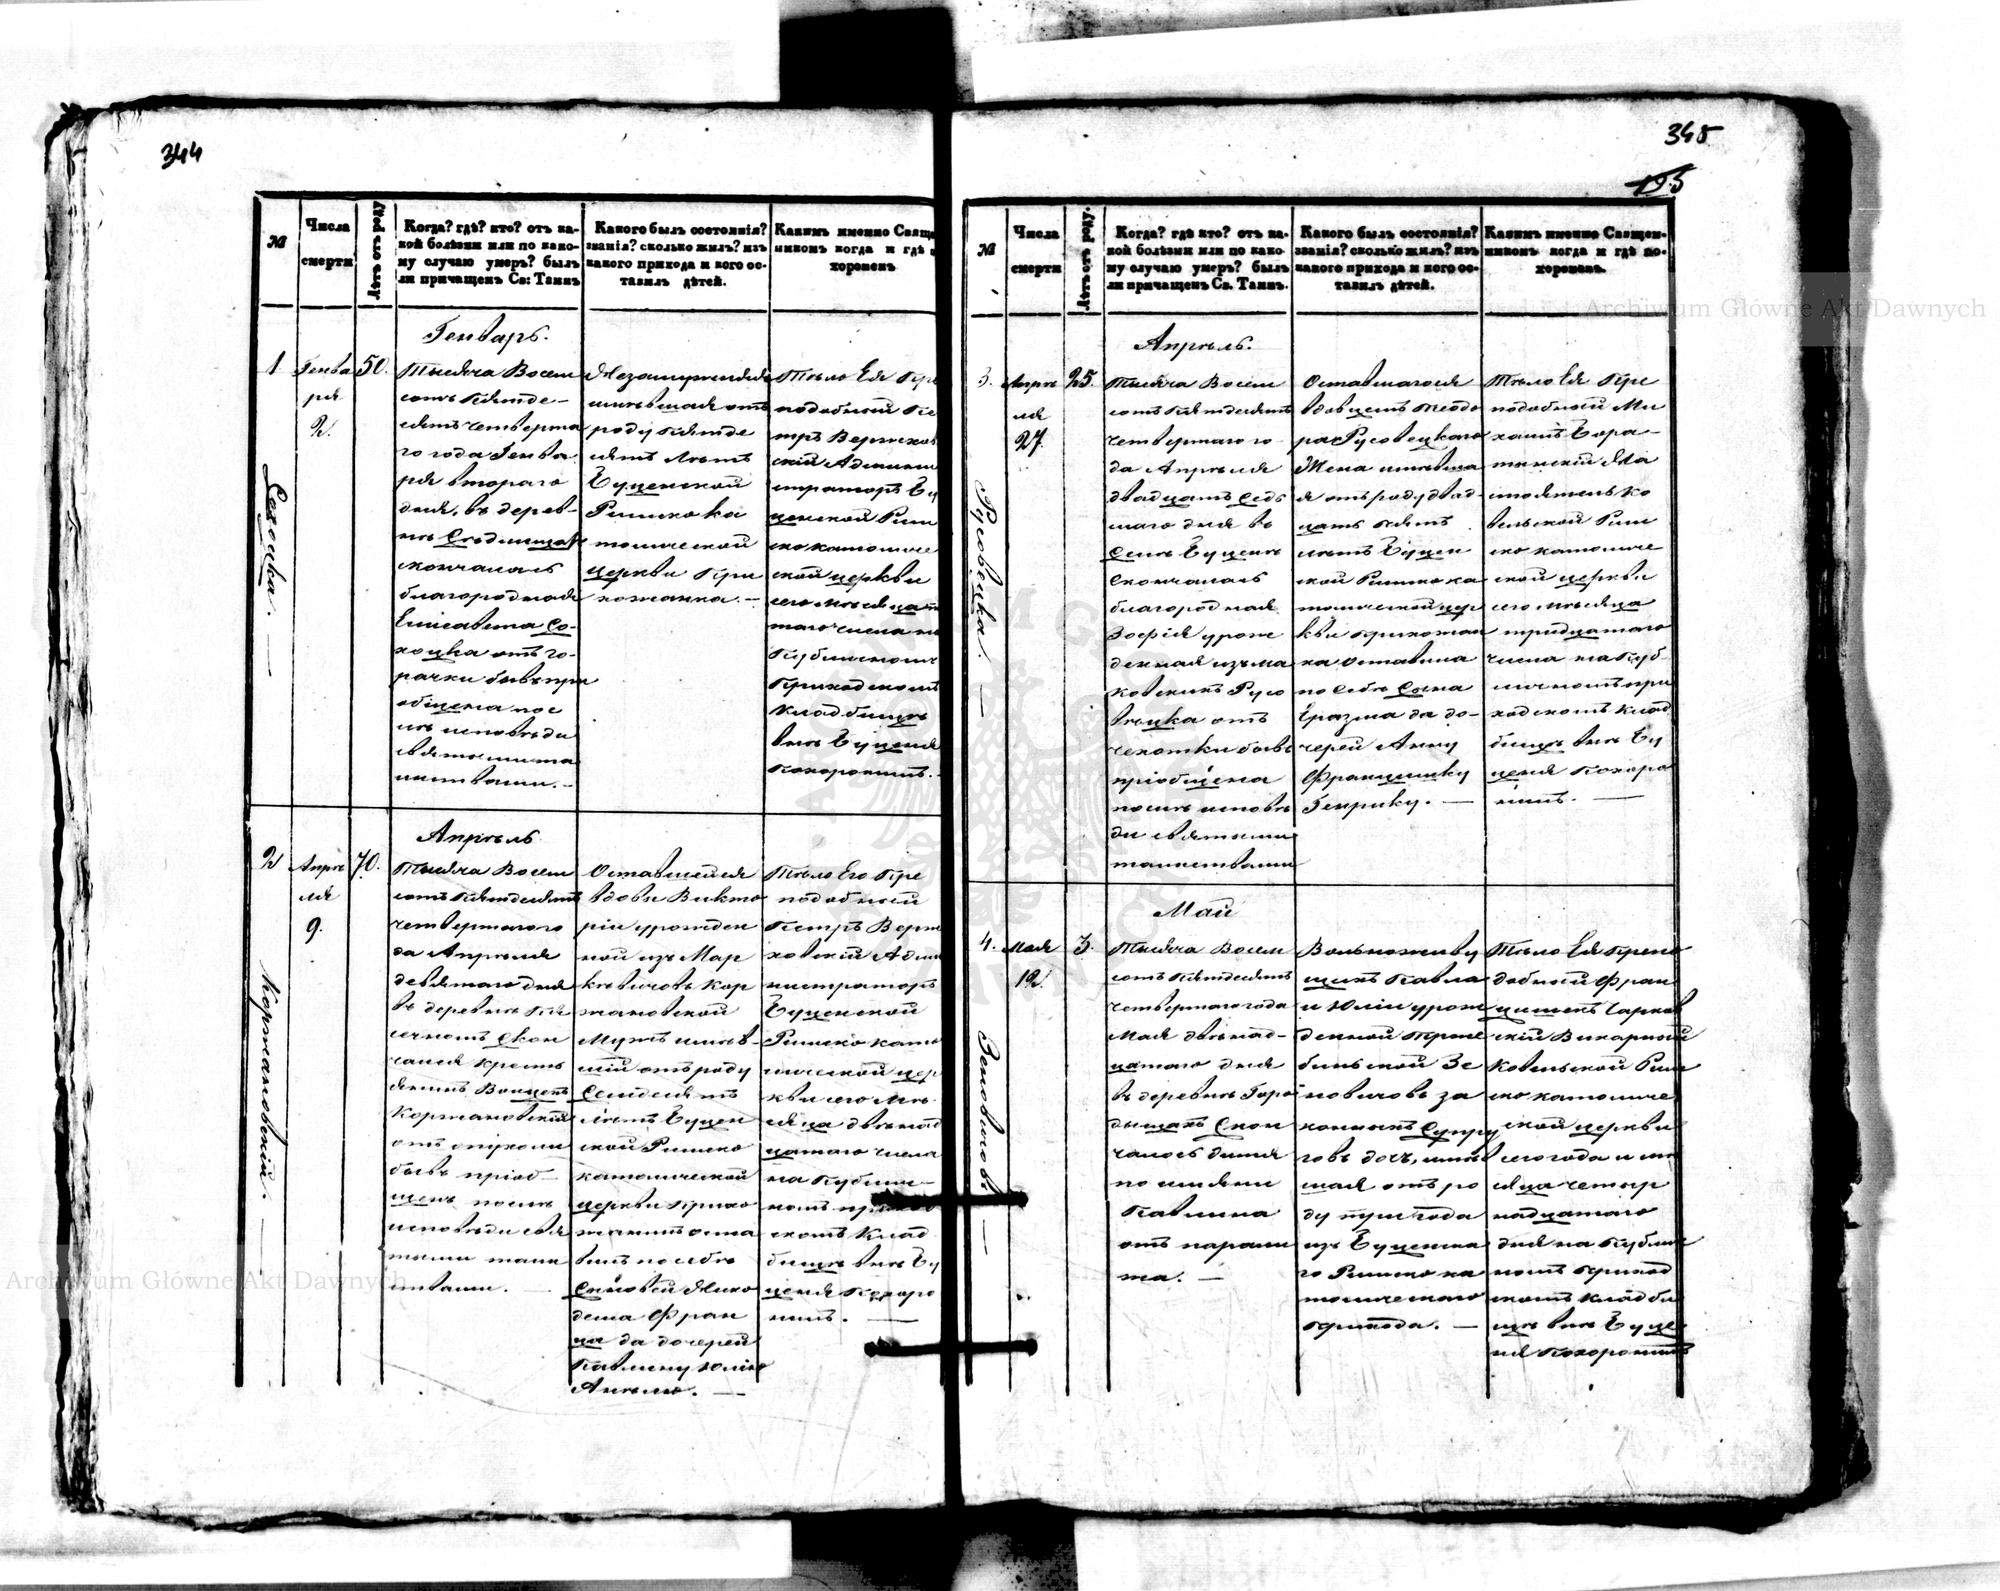 344
№
Числа
смерти
Лѣтъ отъ роду
Когда? гдѣ? кто? отъ ка-
кой болѣзни или по како-
му случаю умеръ? былъ
ли причащенъ Св: Таинъ
Какого былъ состоянія?
званія? сколько жилъ? изъ
какого прихода и кого ос-
тавилъ дѣтей.
Какимъ именно Свяще
никомъ когда и гдѣ
хороненъ
Генварь.
1
Генва
ря
2.
50.
Сохоцка. —
Тысяча Восем
сотъ Пятде-
сятъ четверта
го года Генва
ря втораго
дня, въ дерев-
нѣ Сѣдлищах
скончалась
благородная
Елисавета Со-
хоцка отъ го-
рячки бывъ при
общена пос
лѣ исповѣди
святыми та
инствами. -
Незамужняя
имѣвшая отъ
роду Пятде
сятъ лѣтъ
Буценской
Римско ка
толической
церкви при
хожанка. —
Тѣло Ея Пре
подобный Пе
тръ Вержхов
скій Админи
страторъ Бу
ценской Рим
ско католиче
ской церкви
сего мѣсяца
таго числа на
Публичномъ
Приходскомъ
кладбищѣ
внѣ Буценя
Похоронилъ. -
2
Апрѣ
ля
9.
70.
Коржановскій. —
Апрѣль
Тысяча Восем
сотъ Пятдесятъ
четвертаго го
да Апрѣля
девятаго дня
въ деревнѣ Пѣ
сечномъ Скон
чался Кресть
янинъ Войцехъ
Коржановскій
отъ опухоли
бывъ пріоб-
щенъ послѣ
исповѣди свя
тыми таин
ствами. —
Оставшейся
вдовы Викто
ріи урожден
ной изъ Мар
кевичовъ Кор
жановской
Мужъ имѣв-
шій отъ роду
Семдесятъ
лѣтъ Буцен
ской Римско
католической
церкви Прихо
жанинъ оста
вилъ по себѣ
Сыновей Нико
дема Фран
ца да дочерей
Павлину Юлію
Анелю. —
Тѣло Его Пре
подобный
Петръ Верж
ховскій Адми
нистраторъ
Буценской
Римско като
лической цер
кви сего Мѣ-
сяца двѣнад
цатаго числа
на Публич-
номъ приход
скомъ клад
бищѣ внѣ Бу
ценя Похоро
нилъ. —
345
195
№
Числа
смерти
Лѣтъ отъ роду.
Когда? гдѣ? кто? отъ ка-
кой болѣзни или по како-
му случаю умеръ? былъ
ли причащенъ Св. Таинъ.
Какого былъ состоянія?
званія? сколько жилъ? изъ
какого прихода и кого ос-
тавилъ дѣтей.
Какимъ именно Священ-
никомъ когда и гдѣ по-
хороненъ.
Апрѣль.
3.
Апрѣ
ля
27.
25.
Русовецка. —
Тысяча Восем
сотъ Пятдесятъ
четвертаго го
да Апрѣля
двадцать седь
маго дня въ
Селѣ Буценѣ
Скончалась
благородная
Зофія урож
денная изъ Ма
ковскихъ Русо
вецка отъ
чехотки бывъ
пріобщена
послѣ исповѣ
ди святыми
таинствами
Оставшагося
вдовцемъ Теодо
ра Русовецкаго
Жена имѣвша
я отъ роду двад
цать пять
лѣтъ Буцен
ской Римско ка
толической цер
кви Прихожан
ка оставила
по себѣ Сына
Еразма да до-
черей Анну
Францишку
Генрику. —
Тѣло Ея Пре
подобный Ми
хаилъ Бора-
тинскій На
стоятель Ко
вельской Рим
ско католиче
ской церкви
сего мѣсяца
тридцатаго
числа на Пуб
личномъ при
ходскомъ клад
бищѣ внѣ Бу
ценя Похоро
нилъ. —
Май
4.
Мая
12.
3.
Зеновичовъ —
Тысяча Восем
сотъ Пятдесятъ
четвертаго года
Мая двѣнад-
цатаго дня
въ деревнѣ Горо
дыщахъ Скон
чалось дитя
по имяни
Павлина
отъ парали
та. —
Вольноживу
щихъ Павла
и Юліи урож
денной Трже
бинской Зе
новичовъ за
конныхъ Супру
говъ дочь, имѣв
шая отъ ро
ду три года
изъ Буценска
го Римско ка
толическаго
Прихода. —
Тѣло Ея Препо
добный Фран
цишекъ Чарков
скій Викарный
Ковельской Рим
ско католиче
ской церкви
сего года и мѣ
сяца четыр
надцатаго
дня на Публич
номъ Приход
скомъ кладби
щѣ внѣ Буце
ня Похоронилъ
Archiwum Główne Akt Dawnych
Archiwum Główne Akt Dawnych